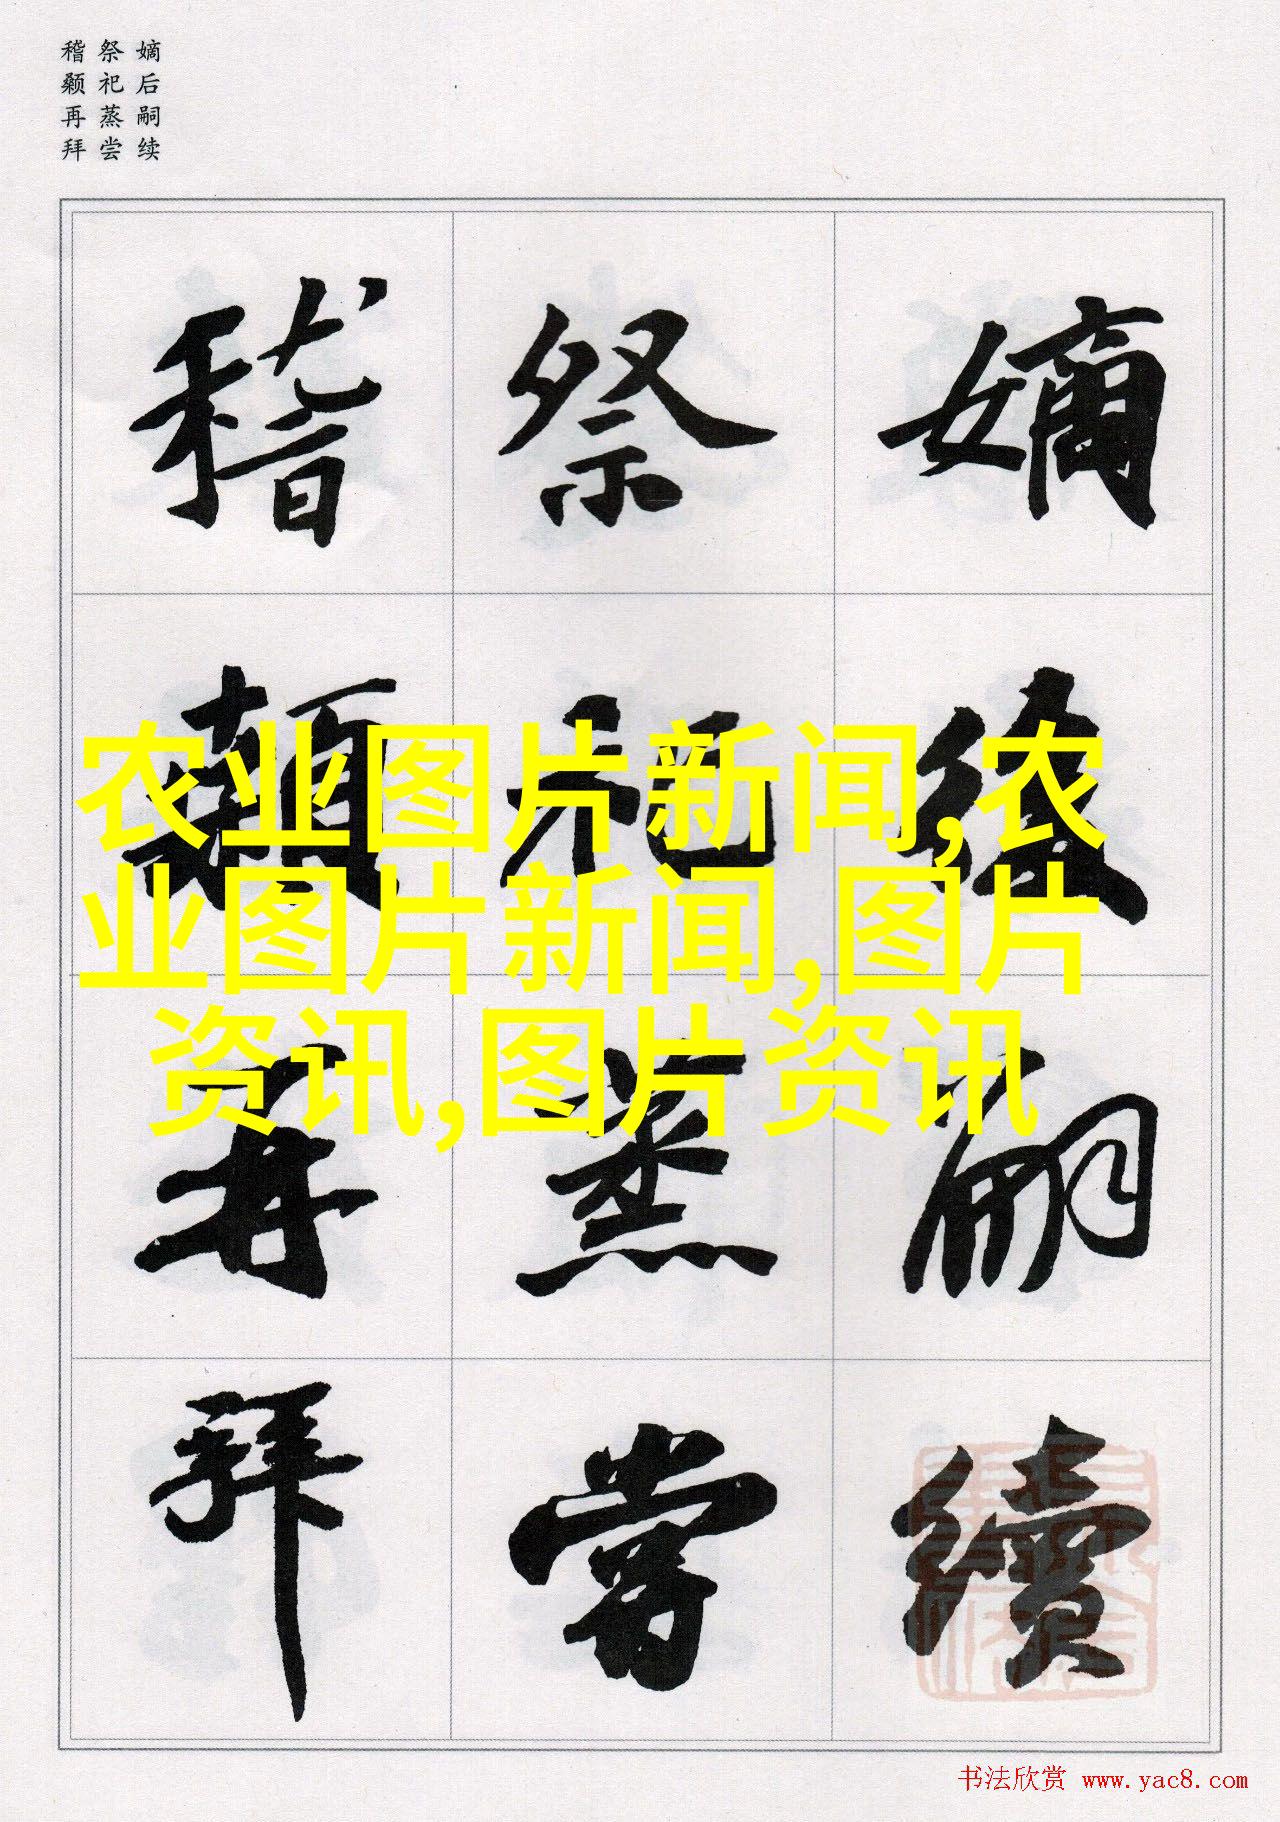 嫡后嗣续
祭祀蒸尝
稽颡再拜
嫡後嗣續
祭祀蒸嘗
稽顙再拜
农业图片新闻,农
业图片新闻,图片
资讯,图片资讯
书法欣赏 www.yac8.com